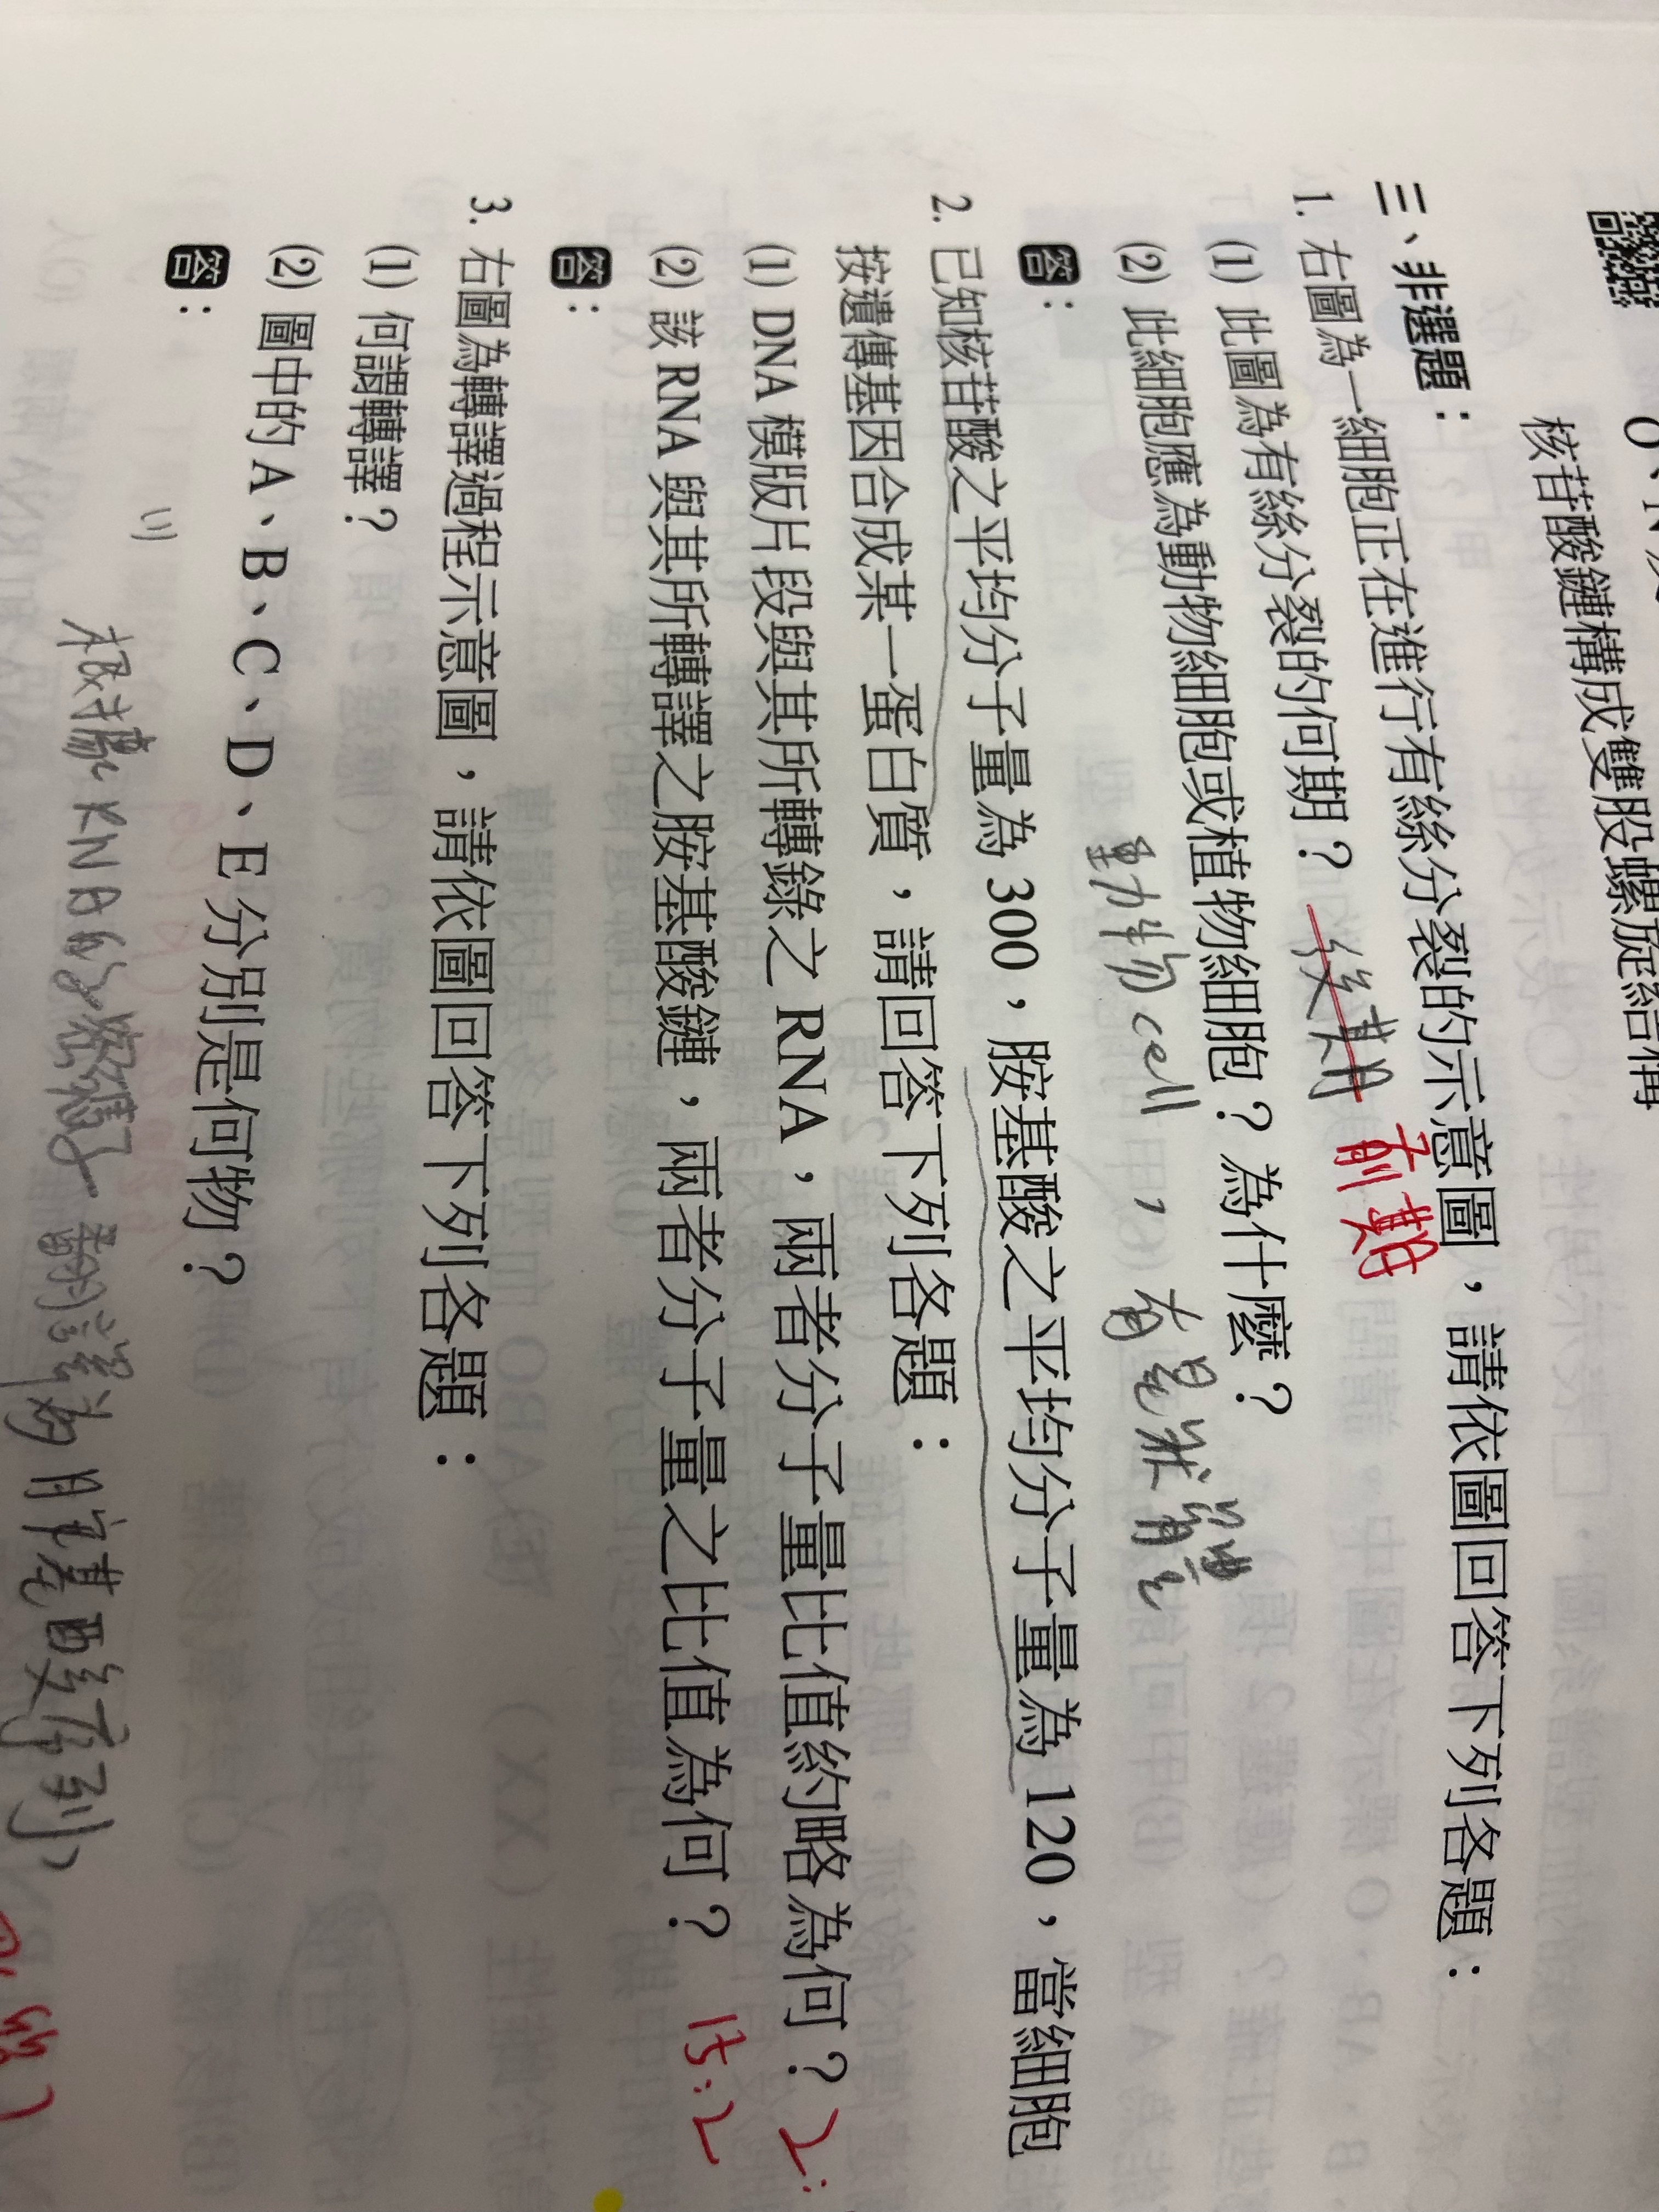 核苷酸鏈構成雙股螺旋結構
三、非選題：
1. 右圖為一細胞正在進行有絲分裂的示意圖，請依圖回答下列各題：
(1) 此圖為有絲分裂的何期？ 後期 前期
(2) 此細胞應為動物細胞或植物細胞？為什麼？
動物cell，有星狀體
答：
2. 已知核苷酸之平均分子量為 300，胺基酸之平均分子量為 120，當細胞
按遺傳基因合成某一蛋白質，請回答下列各題：
(1) DNA 模版片段與其所轉錄之 RNA，兩者分子量比值約略為何？ 2:
(2) 該 RNA 與其所轉譯之胺基酸鏈，兩者分子量之比值為何？ 15:2
答：
3. 右圖為轉譯過程示意圖，請依圖回答下列各題：
(1) 何謂轉譯？
(2) 圖中的 A、B、C、D、E 分別是何物？
答：
(1)
根據RNA的密碼子翻譯為胺基酸序列